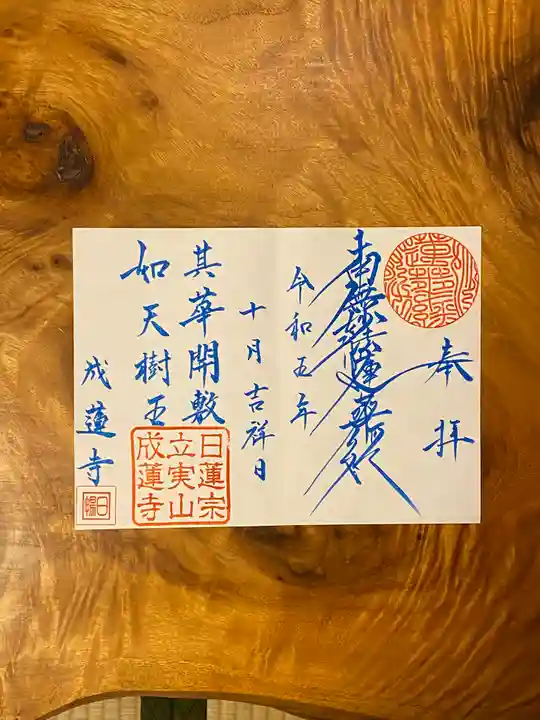 奉拝
南無妙法蓮華経
令和五年
十月吉祥日
其華開敷
如天樹王
成蓮寺
日蓮宗
立実山
成蓮寺